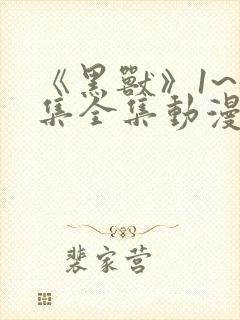 《黑獸》1~
集全集動漫
裴家营